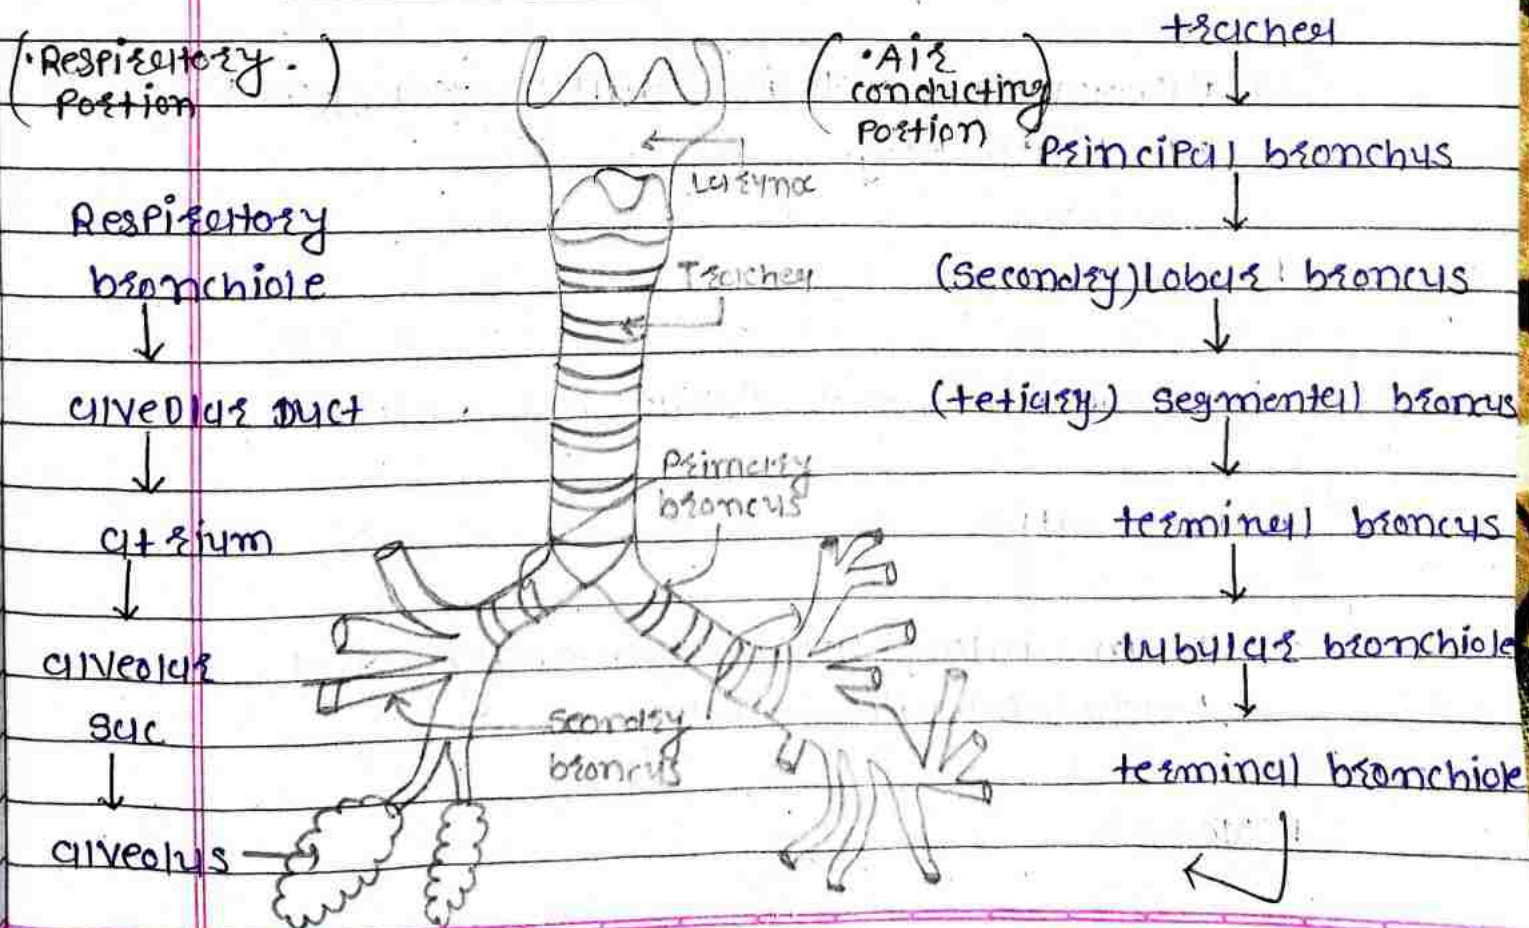 (·Respiratory·)
Portion
Respiratory
bronchiole
alveolar Duct
atrium
alveolar
sac
alveolus
Larynx
Trachea
Primary
broncus
secondry
broncus
(·Air
conducting)
Portion
trachea
Principal bronchus
(Secondry) Lobar broncus
(tetiary) segmental broncus
terminal broncus
lubular bronchiole
terminal bronchiole